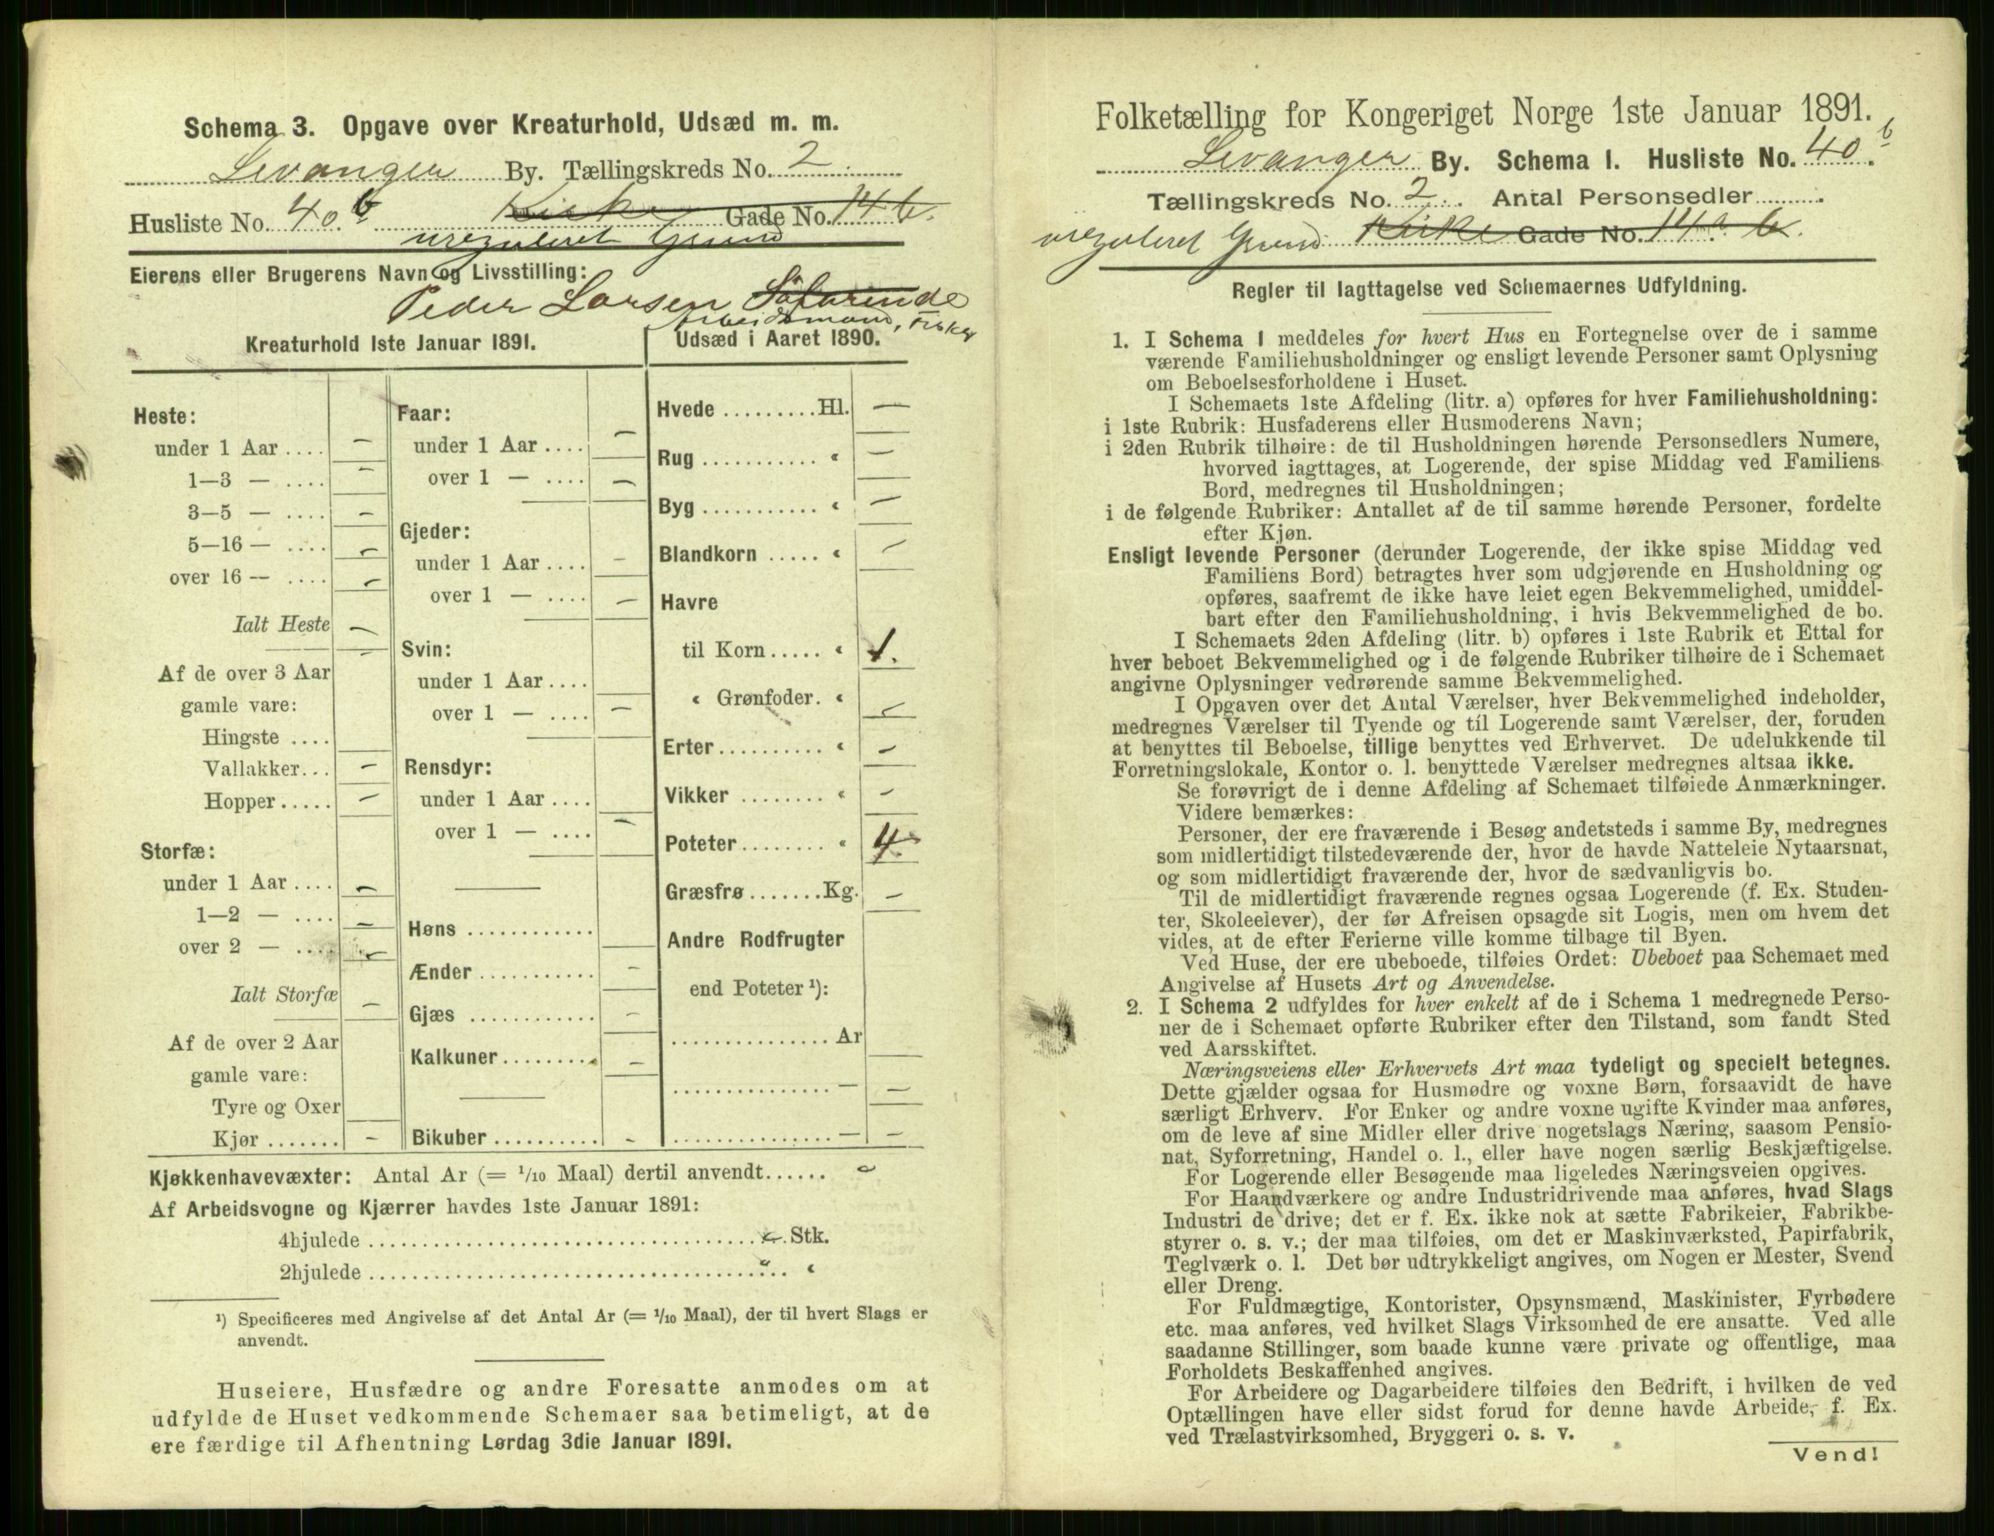 Schema 3. Opgave over Kreaturhold, Udsæd m. m.
Levanger By. Tællingskreds No. 2
Husliste No. 40 b. Kirke Gade No. 14 b.
ureguleret Grund
Eierens eller Brugerens Navn og Livsstilling:
Peder Larsen Søfarende
Arbeidsmand, Fisker
Kreaturhold 1ste Januar 1891.
Heste:
under 1 Aar .... —
1—3 — .... —
3—5 — .... —
5—16 — .... —
over 16 — .... —
Ialt Heste —
Af de over 3 Aar
gamle vare:
Hingste .... —
Vallakker... —
Hopper..... —
Storfæ:
under 1 Aar .... —
1—2 — .... —
over 2 — .... —
Ialt Storfæ —
Af de over 2 Aar
gamle vare:
Tyre og Oxer
Kjør ....... —
Faar:
under 1 Aar .... —
over 1 — .... —
Gjeder:
under 1 Aar .... —
over 1 — .... —
Svin:
under 1 Aar .... —
over 1 — .... —
Rensdyr:
under 1 Aar ....
over 1 — .... —
Høns ............
Ænder ........... —
Gjæs ............ —
Kalkuner......... —
Bikuber .......... —
Udsæd i Aaret 1890.
Hvede .........Hl. —
Rug ........... " —
Byg ........... " —
Blandkorn ..... " —
Havre
til Korn ..... " 1.
" Grønfoder. " —
Erter.......... " —
Vikker ........ " —
Poteter........ " 4.
Græsfrø .......Kg. —
Andre Rodfrugter
end Poteter ¹):
............... Ar
............... — —
............... — —
Kjøkkenhavevæxter: Antal Ar (= 1/10 Maal) dertil anvendt...... —
Af Arbeidsvogne og Kjærrer havdes 1ste Januar 1891:
4hjulede ........................................ Stk.
2hjulede ........................................ "
¹) Specificeres med Angivelse af det Antal Ar (= 1/10 Maal), der til hvert Slags er
anvendt.
Huseiere, Husfædre og andre Foresatte anmodes om at
udfylde de Huset vedkommende Schemaer saa betimeligt, at de
ere færdige til Afhentning Lørdag 3die Januar 1891.
Folketælling for Kongeriget Norge 1ste Januar 1891.
Levanger By. Schema 1. Husliste No. 40 b.
Tællingskreds No. 2. Antal Personsedler .......
ureguleret Grund Kirke Gade No. 14 a b.
Regler til Iagttagelse ved Schemaernes Udfyldning.
1. I Schema 1 meddeles for hvert Hus en Fortegnelse over de i samme
værende Familiehusholdninger og ensligt levende Personer samt Oplysning
om Beboelsesforholdene i Huset.
I Schemaets 1ste Afdeling (litr. a) opføres for hver Familiehusholdning:
i 1ste Rubrik: Husfaderens eller Husmoderens Navn;
i 2den Rubrik tilhøire: de til Husholdningen hørende Personsedlers Numere,
hvorved iagttages, at Logerende, der spise Middag ved Familiens
Bord, medregnes til Husholdningen;
i de følgende Rubriker: Antallet af de til samme hørende Personer, fordelte
efter Kjøn.
Ensligt levende Personer (derunder Logerende, der ikke spise Middag ved
Familiens Bord) betragtes hver som udgjørende en Husholdning og
opføres, saafremt de ikke have leiet egen Bekvemmelighed, umiddel-
bart efter den Familiehusholdning, i hvis Bekvemmelighed de bo.
I Schemaets 2den Afdeling (litr. b) opføres i 1ste Rubrik et Ettal for
hver beboet Bekvemmelighed og i de følgende Rubriker tilhøire de i Schemaet
angivne Oplysninger vedrørende samme Bekvemmelighed.
I Opgaven over det Antal Værelser, hver Bekvemmelighed indeholder,
medregnes Værelser til Tyende og til Logerende samt Værelser, der, foruden
at benyttes til Beboelse, tillige benyttes ved Erhvervet. De udelukkende til
Forretningslokale, Kontor o. l. benyttede Værelser medregnes altsaa ikke.
Se forøvrigt de i denne Afdeling af Schemaet tilføiede Anmærkninger.
Videre bemærkes:
Personer, der ere fraværende i Besøg andetsteds i samme By, medregnes
som midlertidigt tilstedeværende der, hvor de havde Natteleie Nytaarsnat,
og som midlertidigt fraværende der, hvor de sædvanligvis bo.
Til de midlertidigt fraværende regnes ogsaa Logerende (f. Ex. Studen-
ter, Skoleelever), der før Afreisen opsagde sit Logis, men om hvem det
vides, at de efter Ferierne ville komme tilbage til Byen.
Ved Huse, der ere ubeboede, tilføies Ordet: Ubeboet paa Schemaet med
Angivelse af Husets Art og Anvendelse.
2. I Schema 2 udfyldes for hver enkelt af de i Schema 1 medregnede Perso-
ner de i Schemaet opførte Rubriker efter den Tilstand, som fandt Sted
ved Aarsskiftet.
Næringsveiens eller Erhvervets Art maa tydeligt og specielt betegnes.
Dette gjælder ogsaa for Husmødre og voxne Børn, forsaavidt de have
særligt Erhverv. For Enker og andre voxne ugifte Kvinder maa anføres,
om de leve af sine Midler eller drive nogetslags Næring, saasom Pensio-
nat, Syforretning, Handel o. l., eller have nogen særlig Beskjæftigelse.
For Logerende eller Besøgende maa ligeledes Næringsveien opgives.
For Haandværkere og andre Industridrivende maa anføres, hvad Slags
Industri de drive; det er f. Ex. ikke nok at sætte Fabrikeier, Fabrikbe-
styrer o. s. v.; der maa tilføies, om det er Maskinværksted, Papirfabrik,
Teglværk o. l. Det bør udtrykkeligt angives, om Nogen er Mester, Svend
eller Dreng.
For Fuldmægtige, Kontorister, Opsynsmænd, Maskinister, Fyrbødere
etc. maa anføres, ved hvilket Slags Virksomhed de ere ansatte. Ved alle
saadanne Stillinger, som baade kunne være private og offentlige, maa
Forholdets Beskaffenhed angives.
For Arbeidere og Dagarbeidere tilføies den Bedrift, i hvilken de ved
Optællingen have eller sidst forud for denne havde Arbeide, f. Ex.
ved Trælastvirksomhed, Bryggeri o. s. v.
Vend!